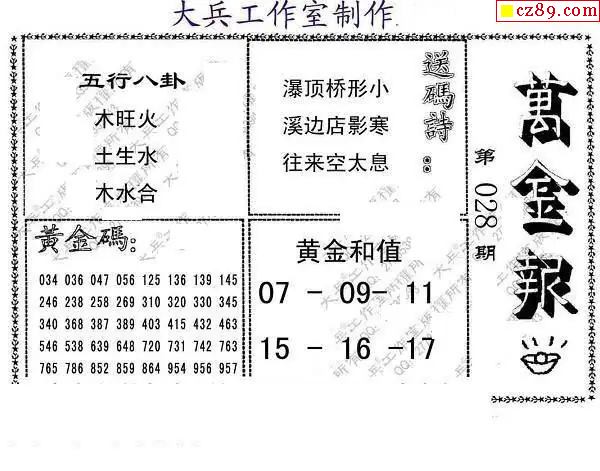 大兵工作室制作
cz89.com
五行八卦
木旺火
土生水
木水合
瀑顶桥形小
溪边店影寒
往来空太息
送碼詩：
萬金報
第028期
黃金碼：
034 036 047 056 125 136 139 145
246 238 258 269 310 320 330 345
340 368 387 389 403 415 432 463
546 538 639 648 720 731 742 763
765 786 852 859 864 954 956 957
黄金和值
07 - 09- 11
15 - 16 -17